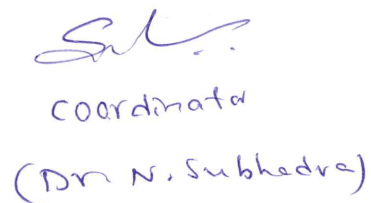 Coordinator
(Dr. N. Subhadra)